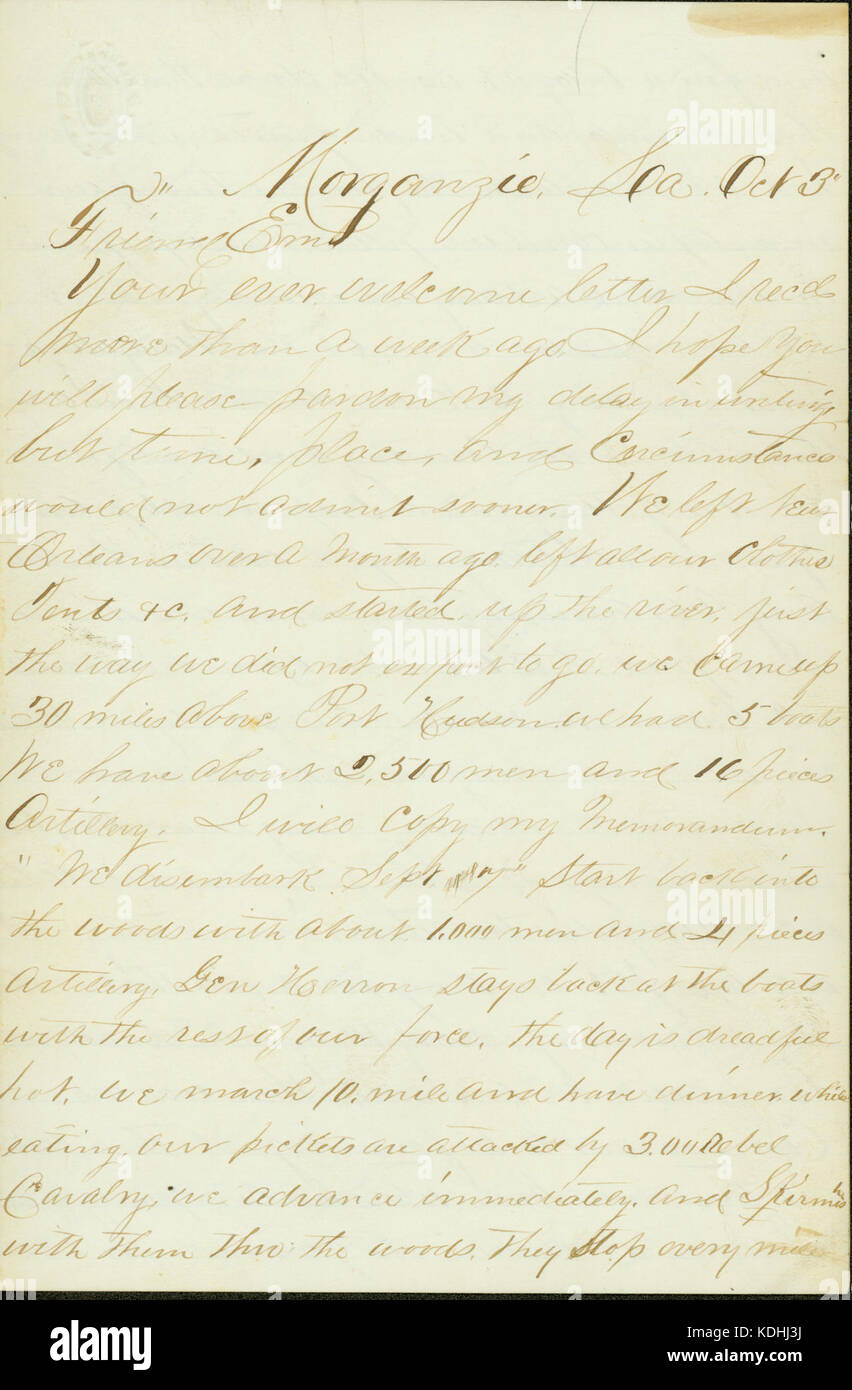 " Morganzie, Loa. Oct 3"
Friend Em
Your ever welcome letter I recd
more than a week ago. I hope you
will please pardon my delay in writing,
but time, place, and Circumstances
would not admit sooner. We left New
Orleans over a Month ago. left all our Clothes
Tents &c. and started up the river. just
the way we did not expect to go. we came up
30 miles above Port Hudson we had 5 boats
We have about 2,500 men and 16 pieces
Artillery. I will Copy my Memorandum.
"We disembark Sept 7" Start back into
the woods with about 1.000 men and 4 pieces
Artillery. Gen Herron stays back at the boats
with the rest of our force. the day is dreadful
hot. we march 10. mile and have dinner. while
eating. our pickets are attacked by 3.00 Rebel
Cavalry, we advance immediately. and Skirmish
with them thro the woods. they stop every mile
alamy
Image ID: KDHJ3J
www.alamy.com